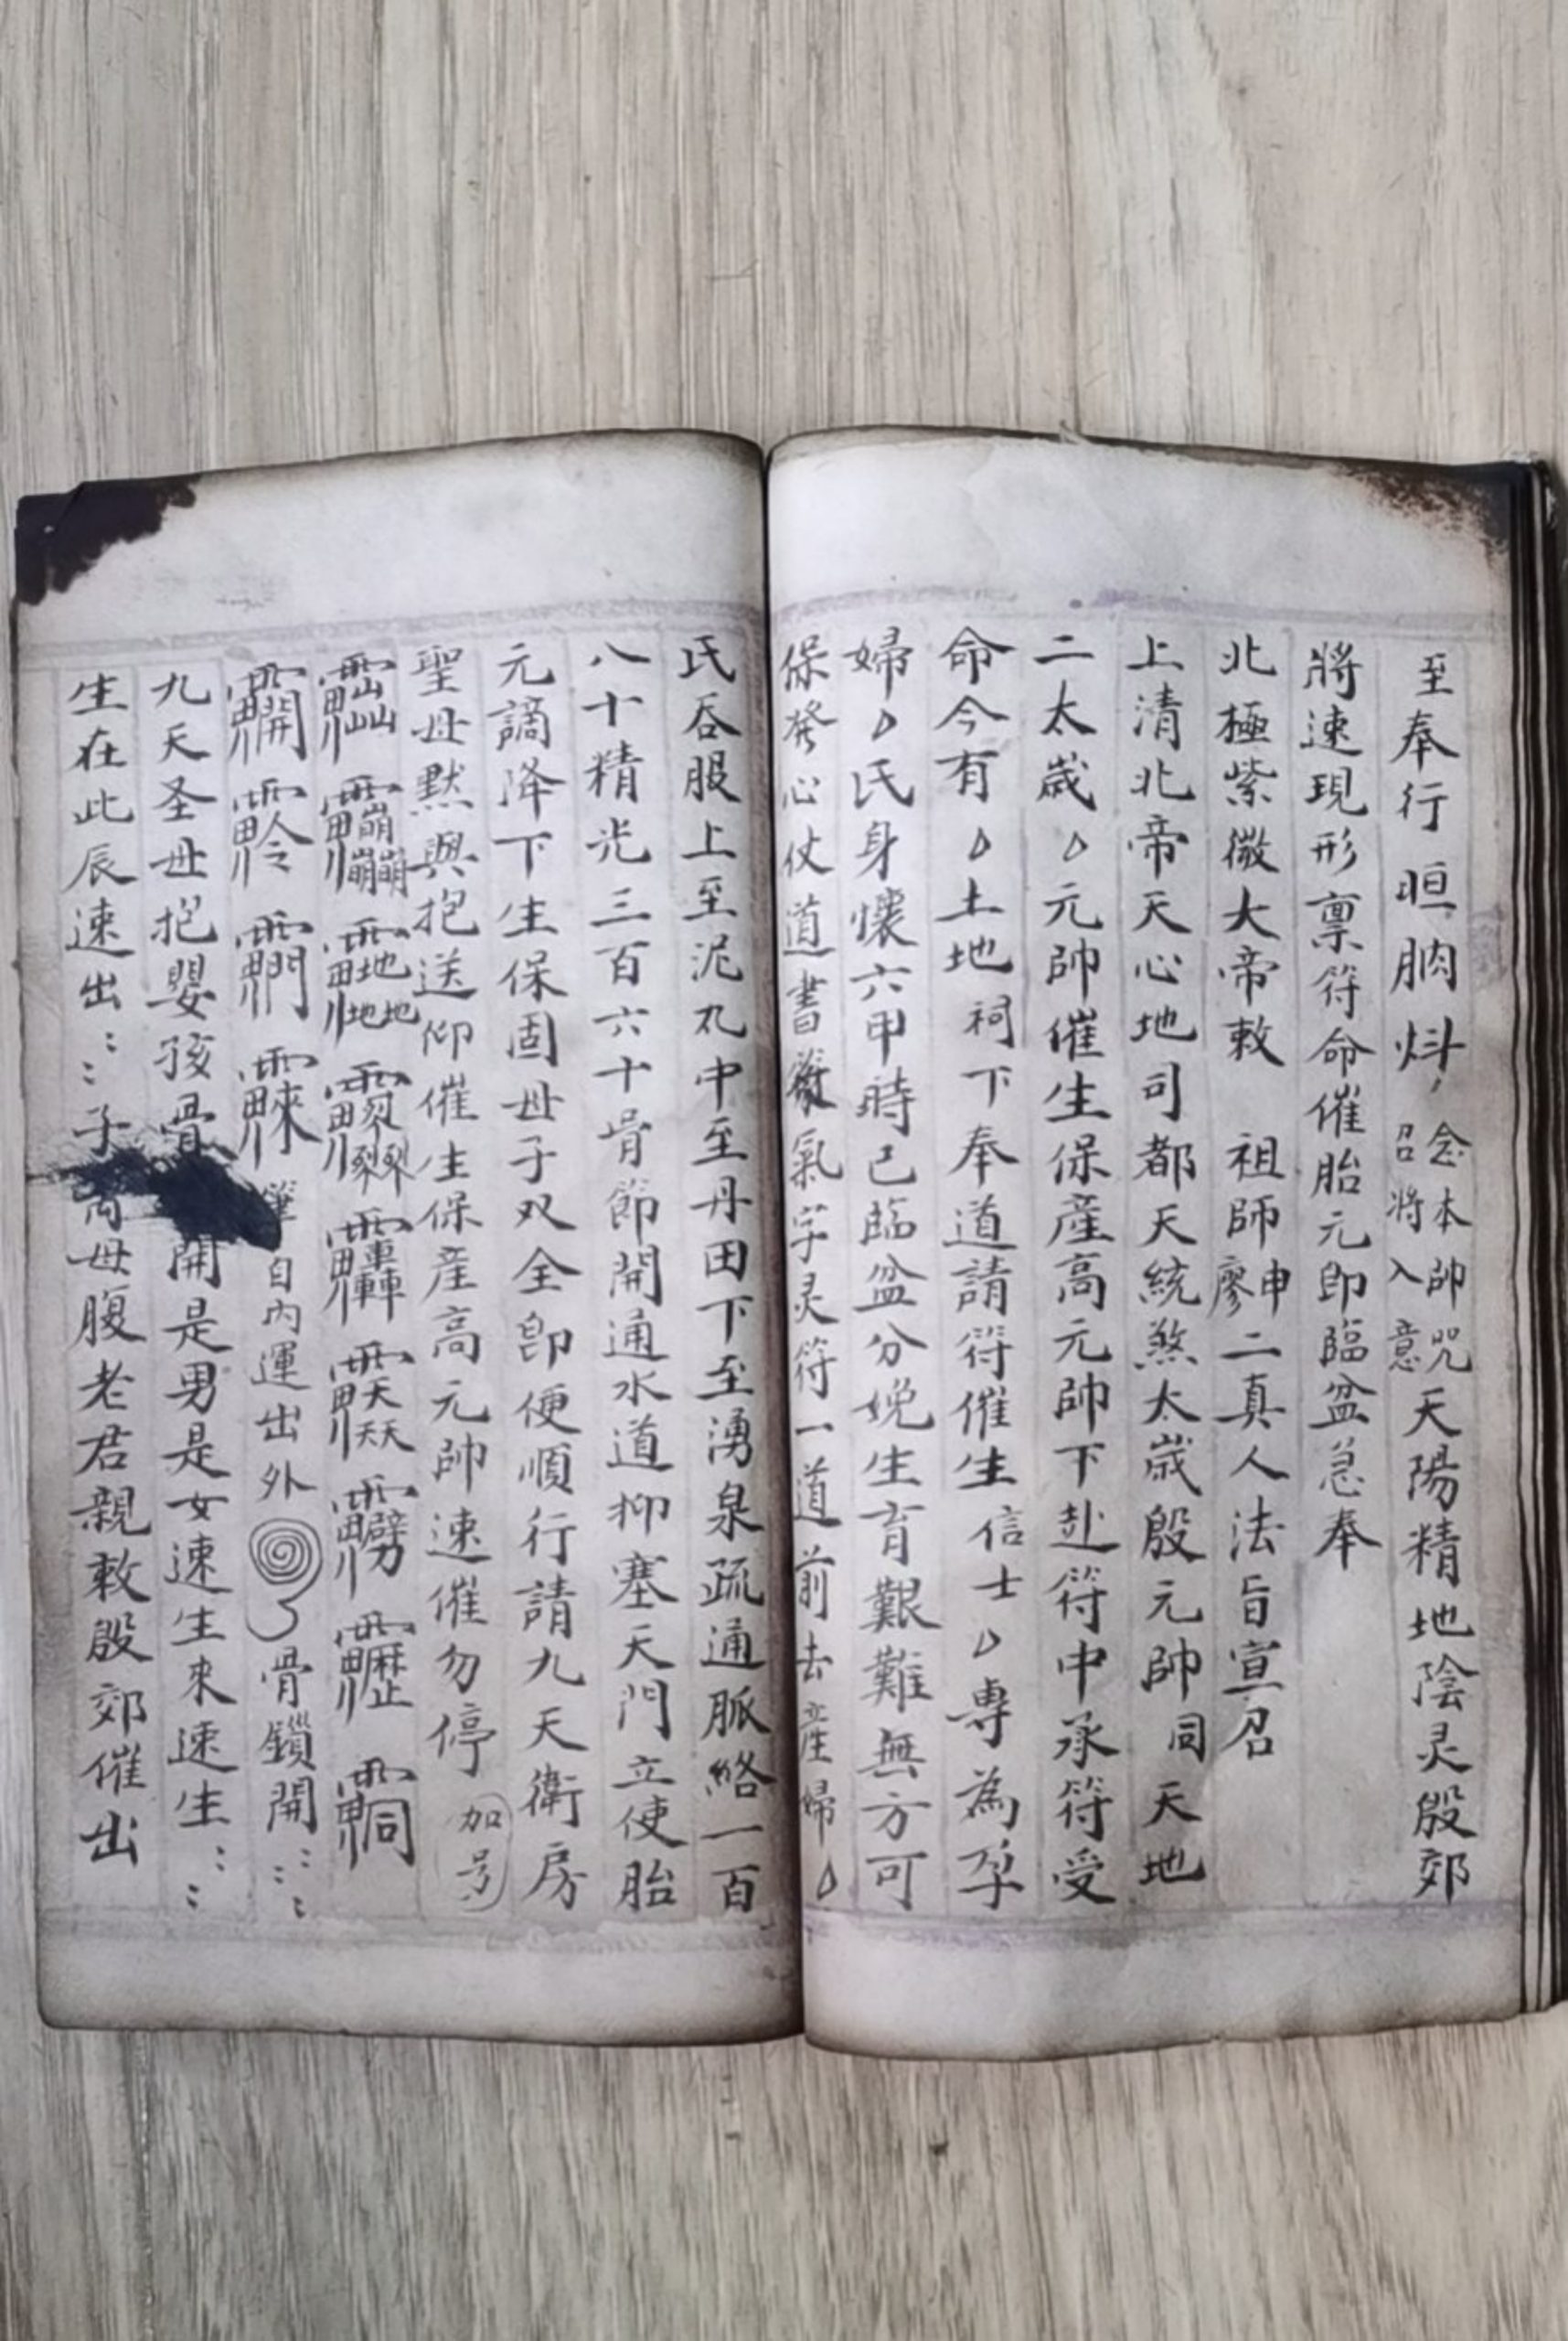 至奉行 晅朒炓 念本帥咒召將入意 天陽精地陰灵殷郊
將速現形禀符命催胎元即臨盆急奉
北極紫微大帝敕 祖師廖申二真人法旨宣召
上清北帝天心地司都天統煞太歲殷元帥同天地
二太歲 元帥催生保産高元帥下赴符中承符受
命今有 土地祠下奉道請符催生信士 專為孕
婦 氏身懷六甲時已臨盆分娩生育艱難無方可
保發心仗道書篆氣字灵符一道前去産婦
氏吞服上至泥丸中至丹田下至湧泉疏通脈絡一百
八十精光三百六十骨節開通水道抑塞天門立使胎
元謫降下生保固母子双全即便順行請九天衛房
聖母默與抱送仰催生保産高元帥速催勿停 加号
自内運出外 骨鎖開
九天圣母抱嬰孩骨 開是男是女速生來速生
生在此辰速出 子 母腹老君親敕殷郊催出